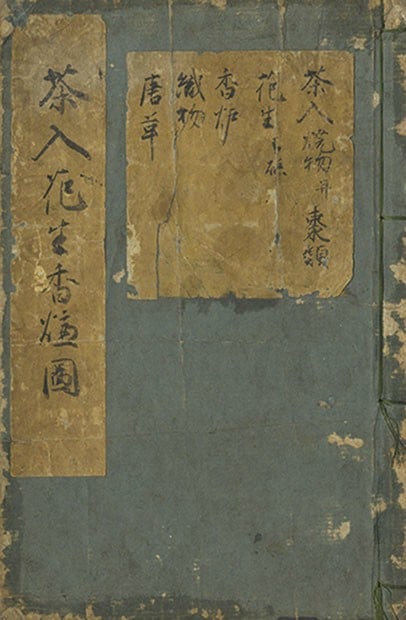 茶入焼物并棗類
花生
香炉
織物
唐草
茶入花生香爐圖